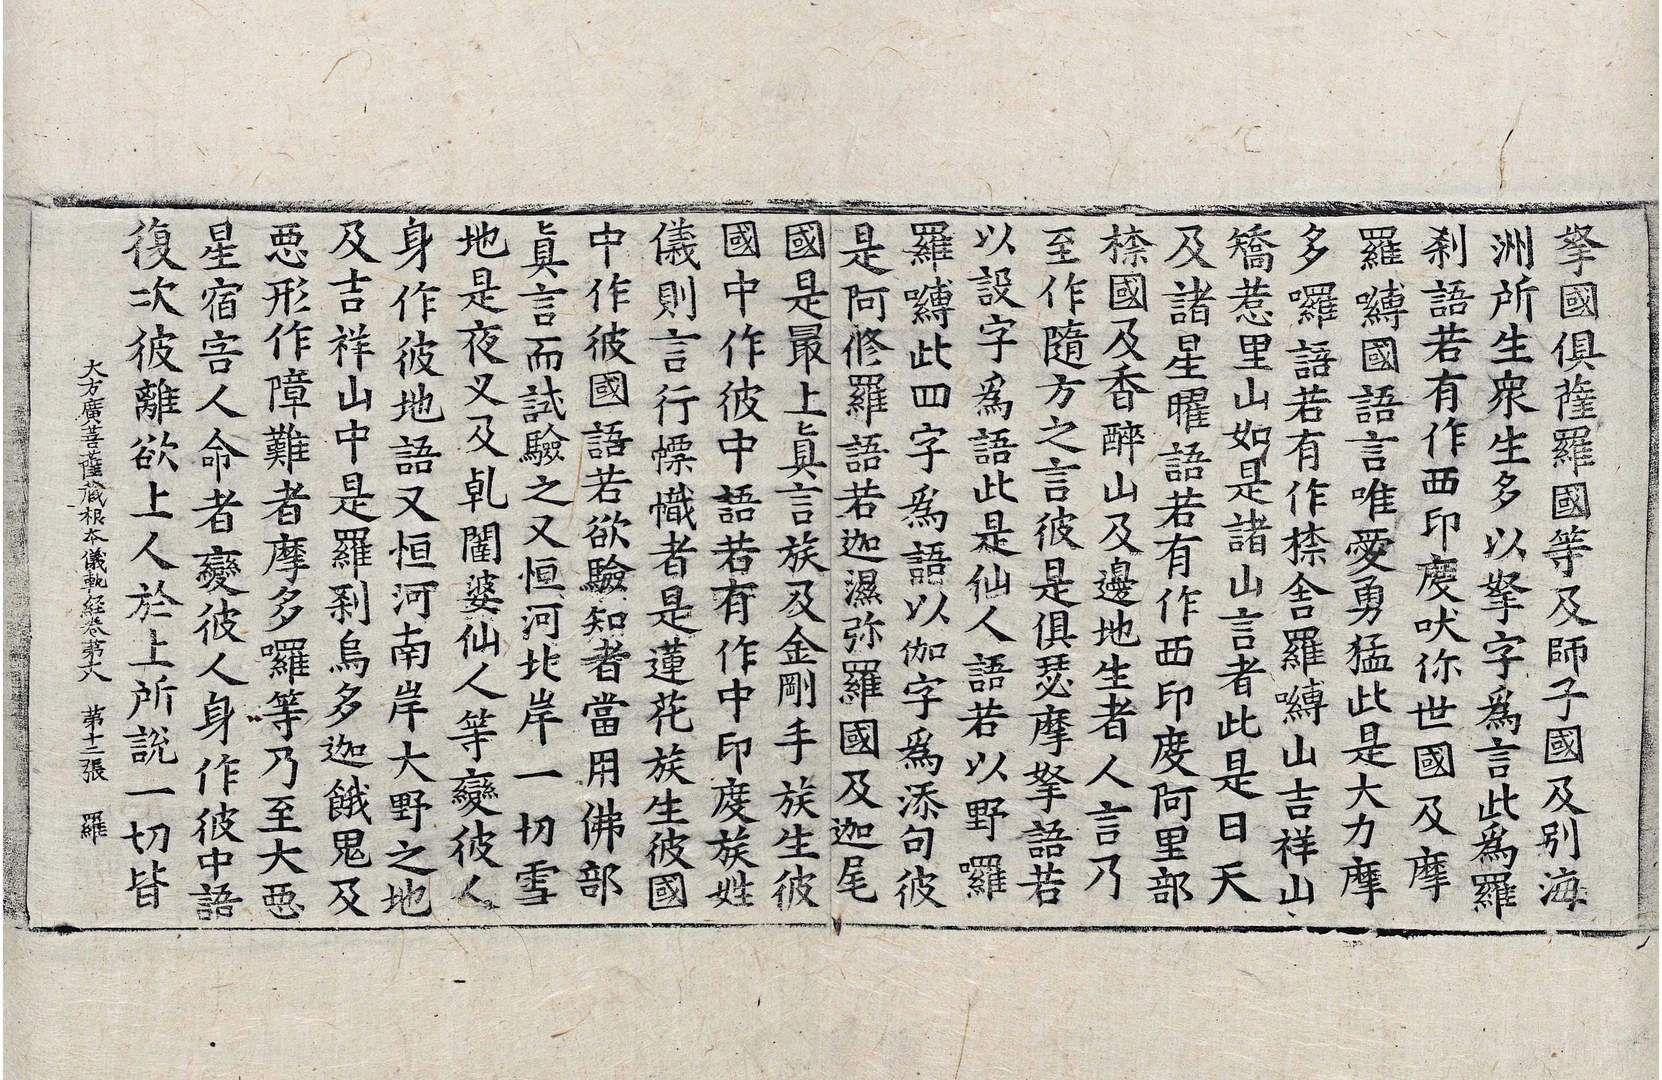 拏國俱薩羅國等及師子國及別海
洲所生衆生多以拏字爲言此爲羅
刹語若有作西印度吠你世國及摩
羅嚩國語言唯愛勇猛此是大力摩
多囉語若有作㮈舍羅嚩山吉祥山
矯惹里山如是諸山言者此是日天
及諸星曜語若有作西印度阿里部
㮈國及香醉山及邊地生者人言乃
至作隨方之言彼是俱瑟摩拏語若
以設字爲語此是仙人語若以野囉
羅嚩此四字爲語以伽字爲添句彼
是阿修羅語若迦濕弥羅國及迦尾
國是最上眞言族及金剛手族生彼
國中作彼中語若有作中印度族姓
儀則言行幖幟者是蓮花族生彼國
中作彼國語若欲驗知者當用佛部
眞言而試驗之又恒河北岸一切雪
地是夜叉及乹闥婆仙人等變彼人
身作彼地語又恒河南岸大野之地
及吉祥山中是羅刹烏多迦餓鬼及
惡形作障難者摩多囉等乃至大惡
星宿害人命者變彼人身作彼中語
復次彼離欲上人於上所說一切皆
大方廣菩薩藏根本儀軌經卷第六 第十二張 羅